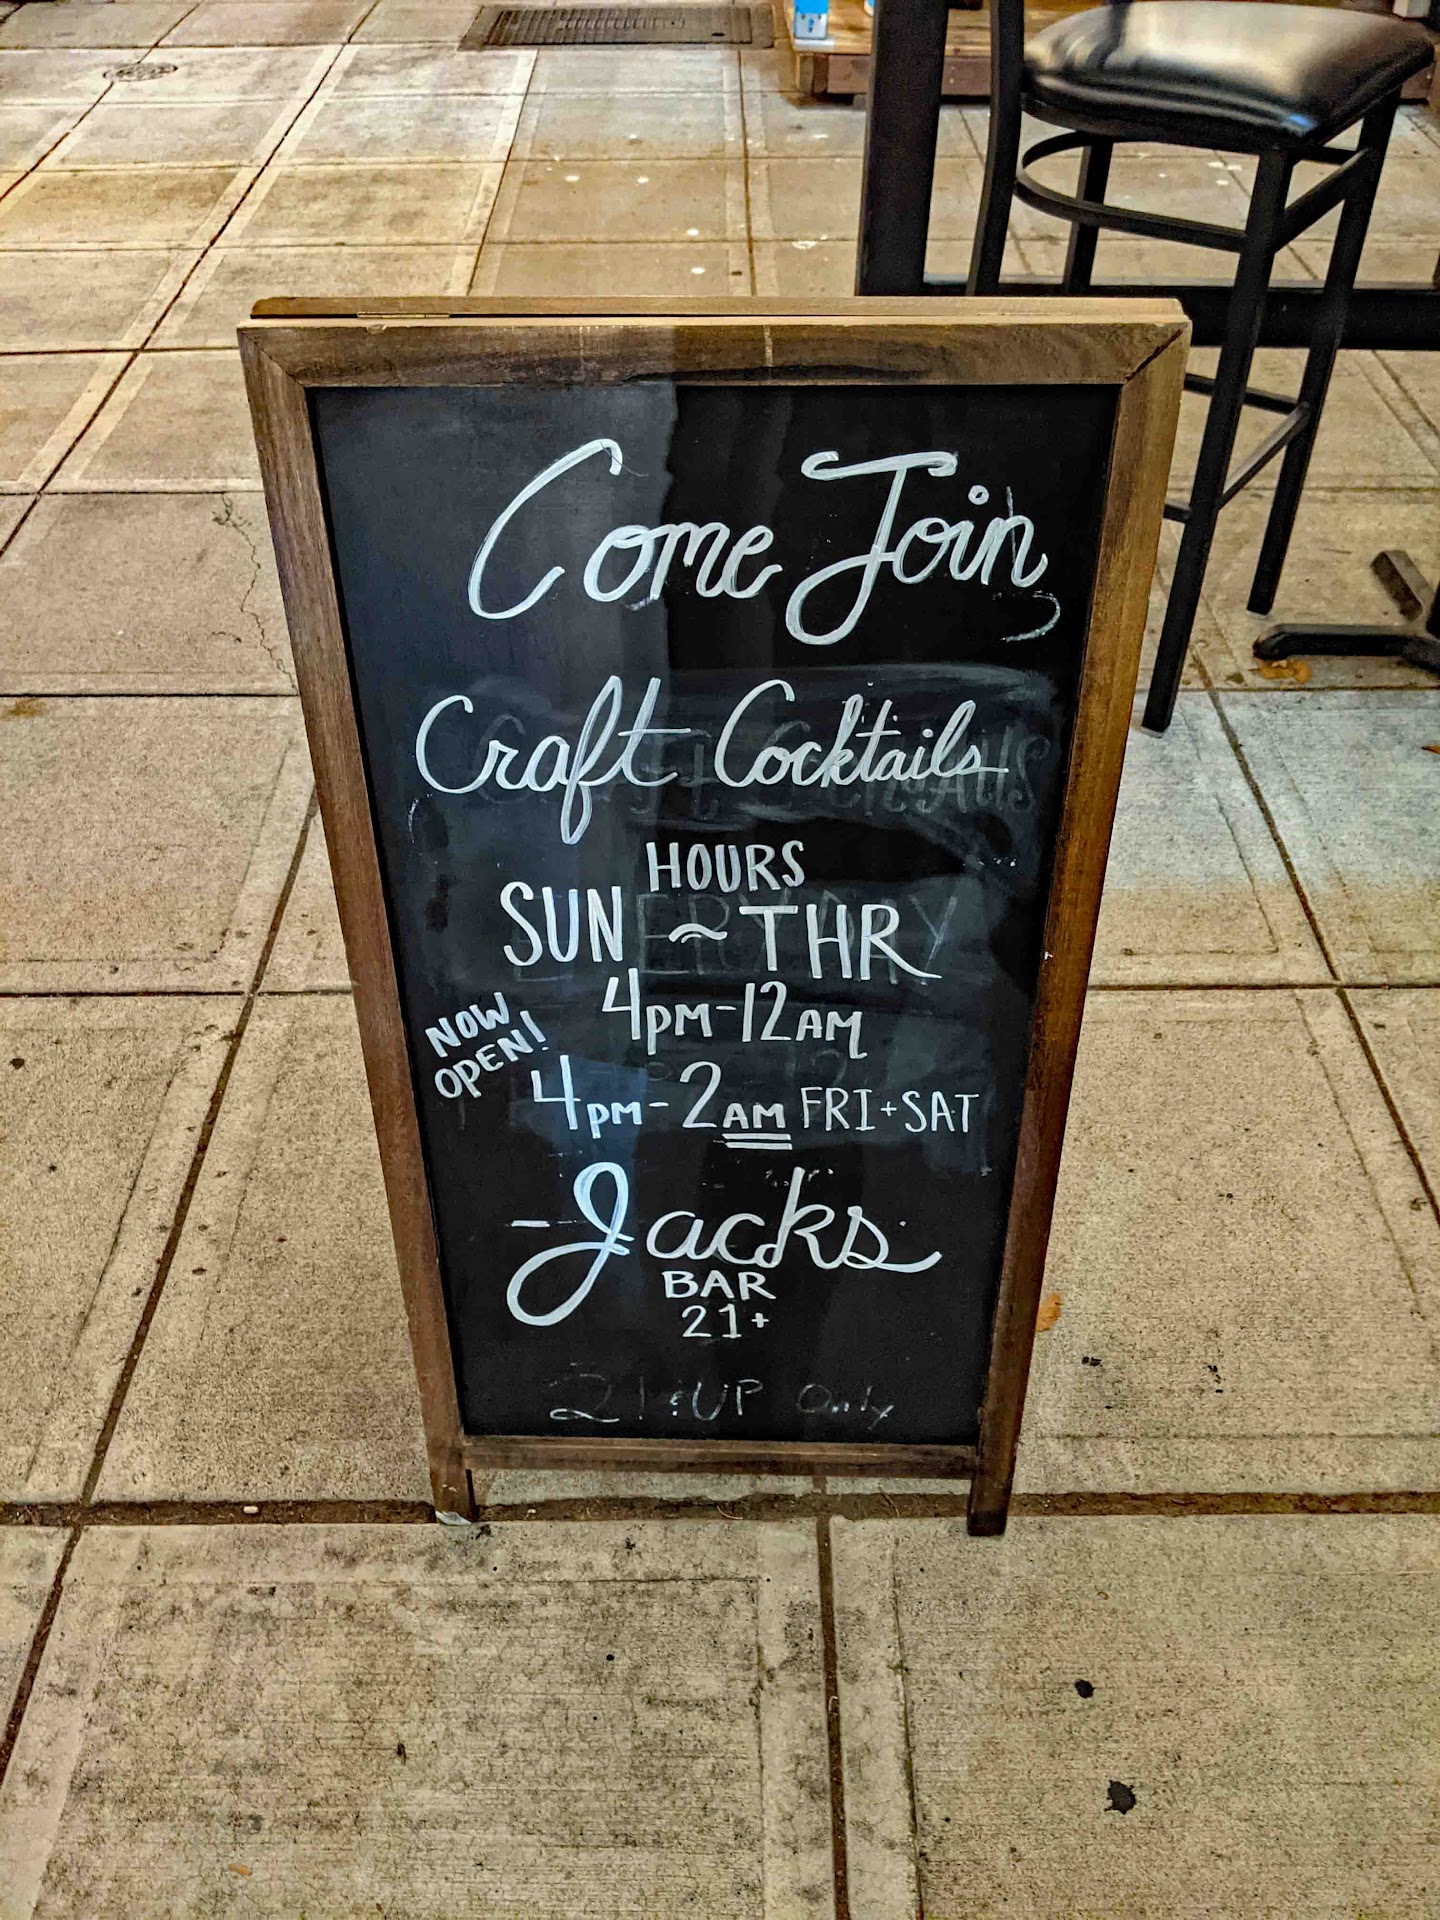 Come Join
Craft Cocktails
HOURS
SUN ~ THR
4PM-12AM
NOW
OPEN!
4PM-2AM FRI+SAT
Jacks
BAR
21+
21 & UP Only